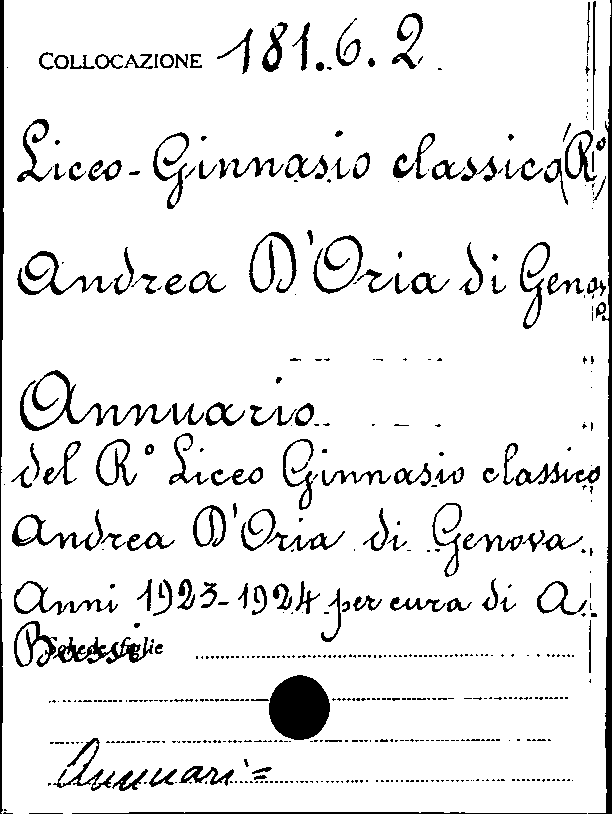 COLLOCAZIONE 181.6.2
Liceo-Ginnasio classico (R°)
Andrea D'Oria di Genova
Annuario
del R° Liceo Ginnasio classico
Andrea D'Oria di Genova.
Anni 1923-1924 per cura di A.
Bassi
Schede figlie
Annuari =